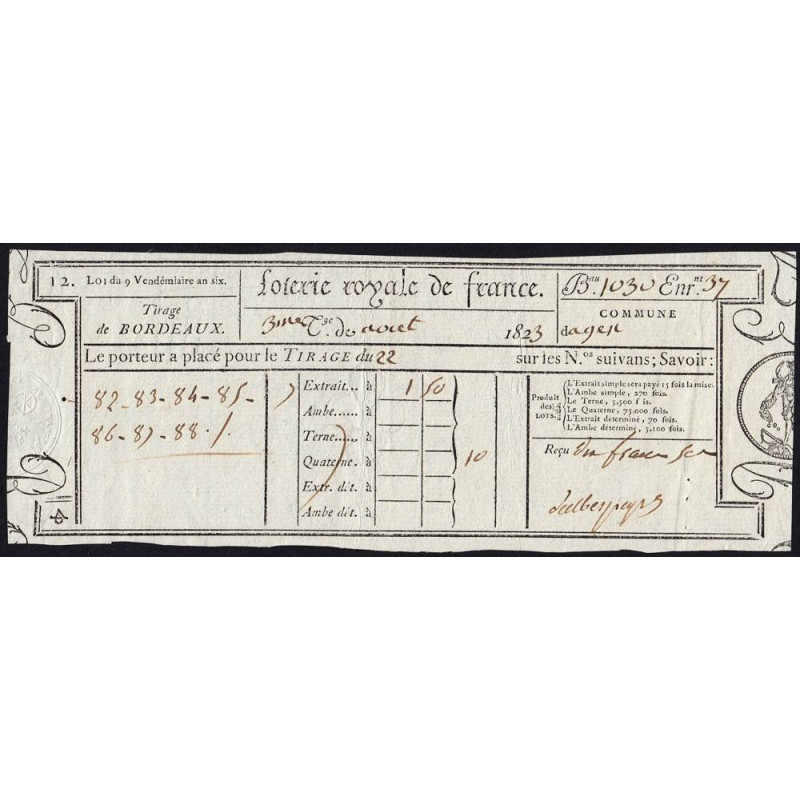 12. Loi du 9 Vendémiaire an six.
Tirage
de BORDEAUX.
Loterie royale de france.
3me T.ge de aout 1823
B.au 1030 Enr.nt 37
COMMUNE
dagen
Le porteur a placé pour le TIRAGE du 22 sur les N.os suivans; Savoir:
82-83-84-85-
86-87-88./.
7
Extrait... à 1 50
Ambe...... à
Terne..... à
Quaterne. à
Extr. dit. à
Ambe dit. à
10
Produit
des
LOTS.
L'Extrait simple sera payé 15 fois la mise.
L'Ambe simple, 270 fois.
Le Terne, 5,500 f is.
Le Quaterne, 75,000 fois.
L'Extrait déterminé, 70 fois.
L'Ambe déterminé, 5,100 fois.
Reçu un franc